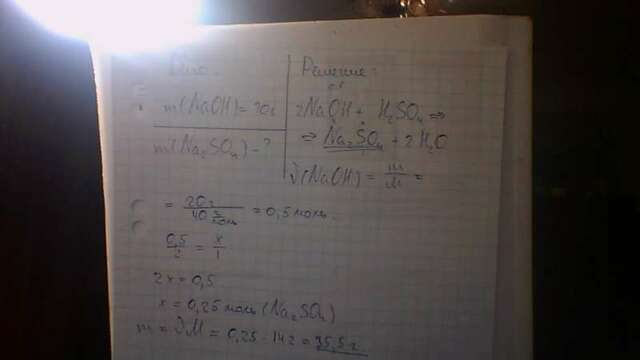 Дано:
m(NaOH)=20г
m(Na₂SO₄)-?
Решение:
0,5 x
2NaOH + H₂SO₄ ⇒
⇒ Na₂SO₄ + 2H₂O
ν(NaOH) = m/M =
= 20г / 40 г/моль = 0,5 моль
0,5/2 = x/1
2x = 0,5
x = 0,25 моль (Na₂SO₄)
m = νM = 0,25 · 142 = 35,5 г